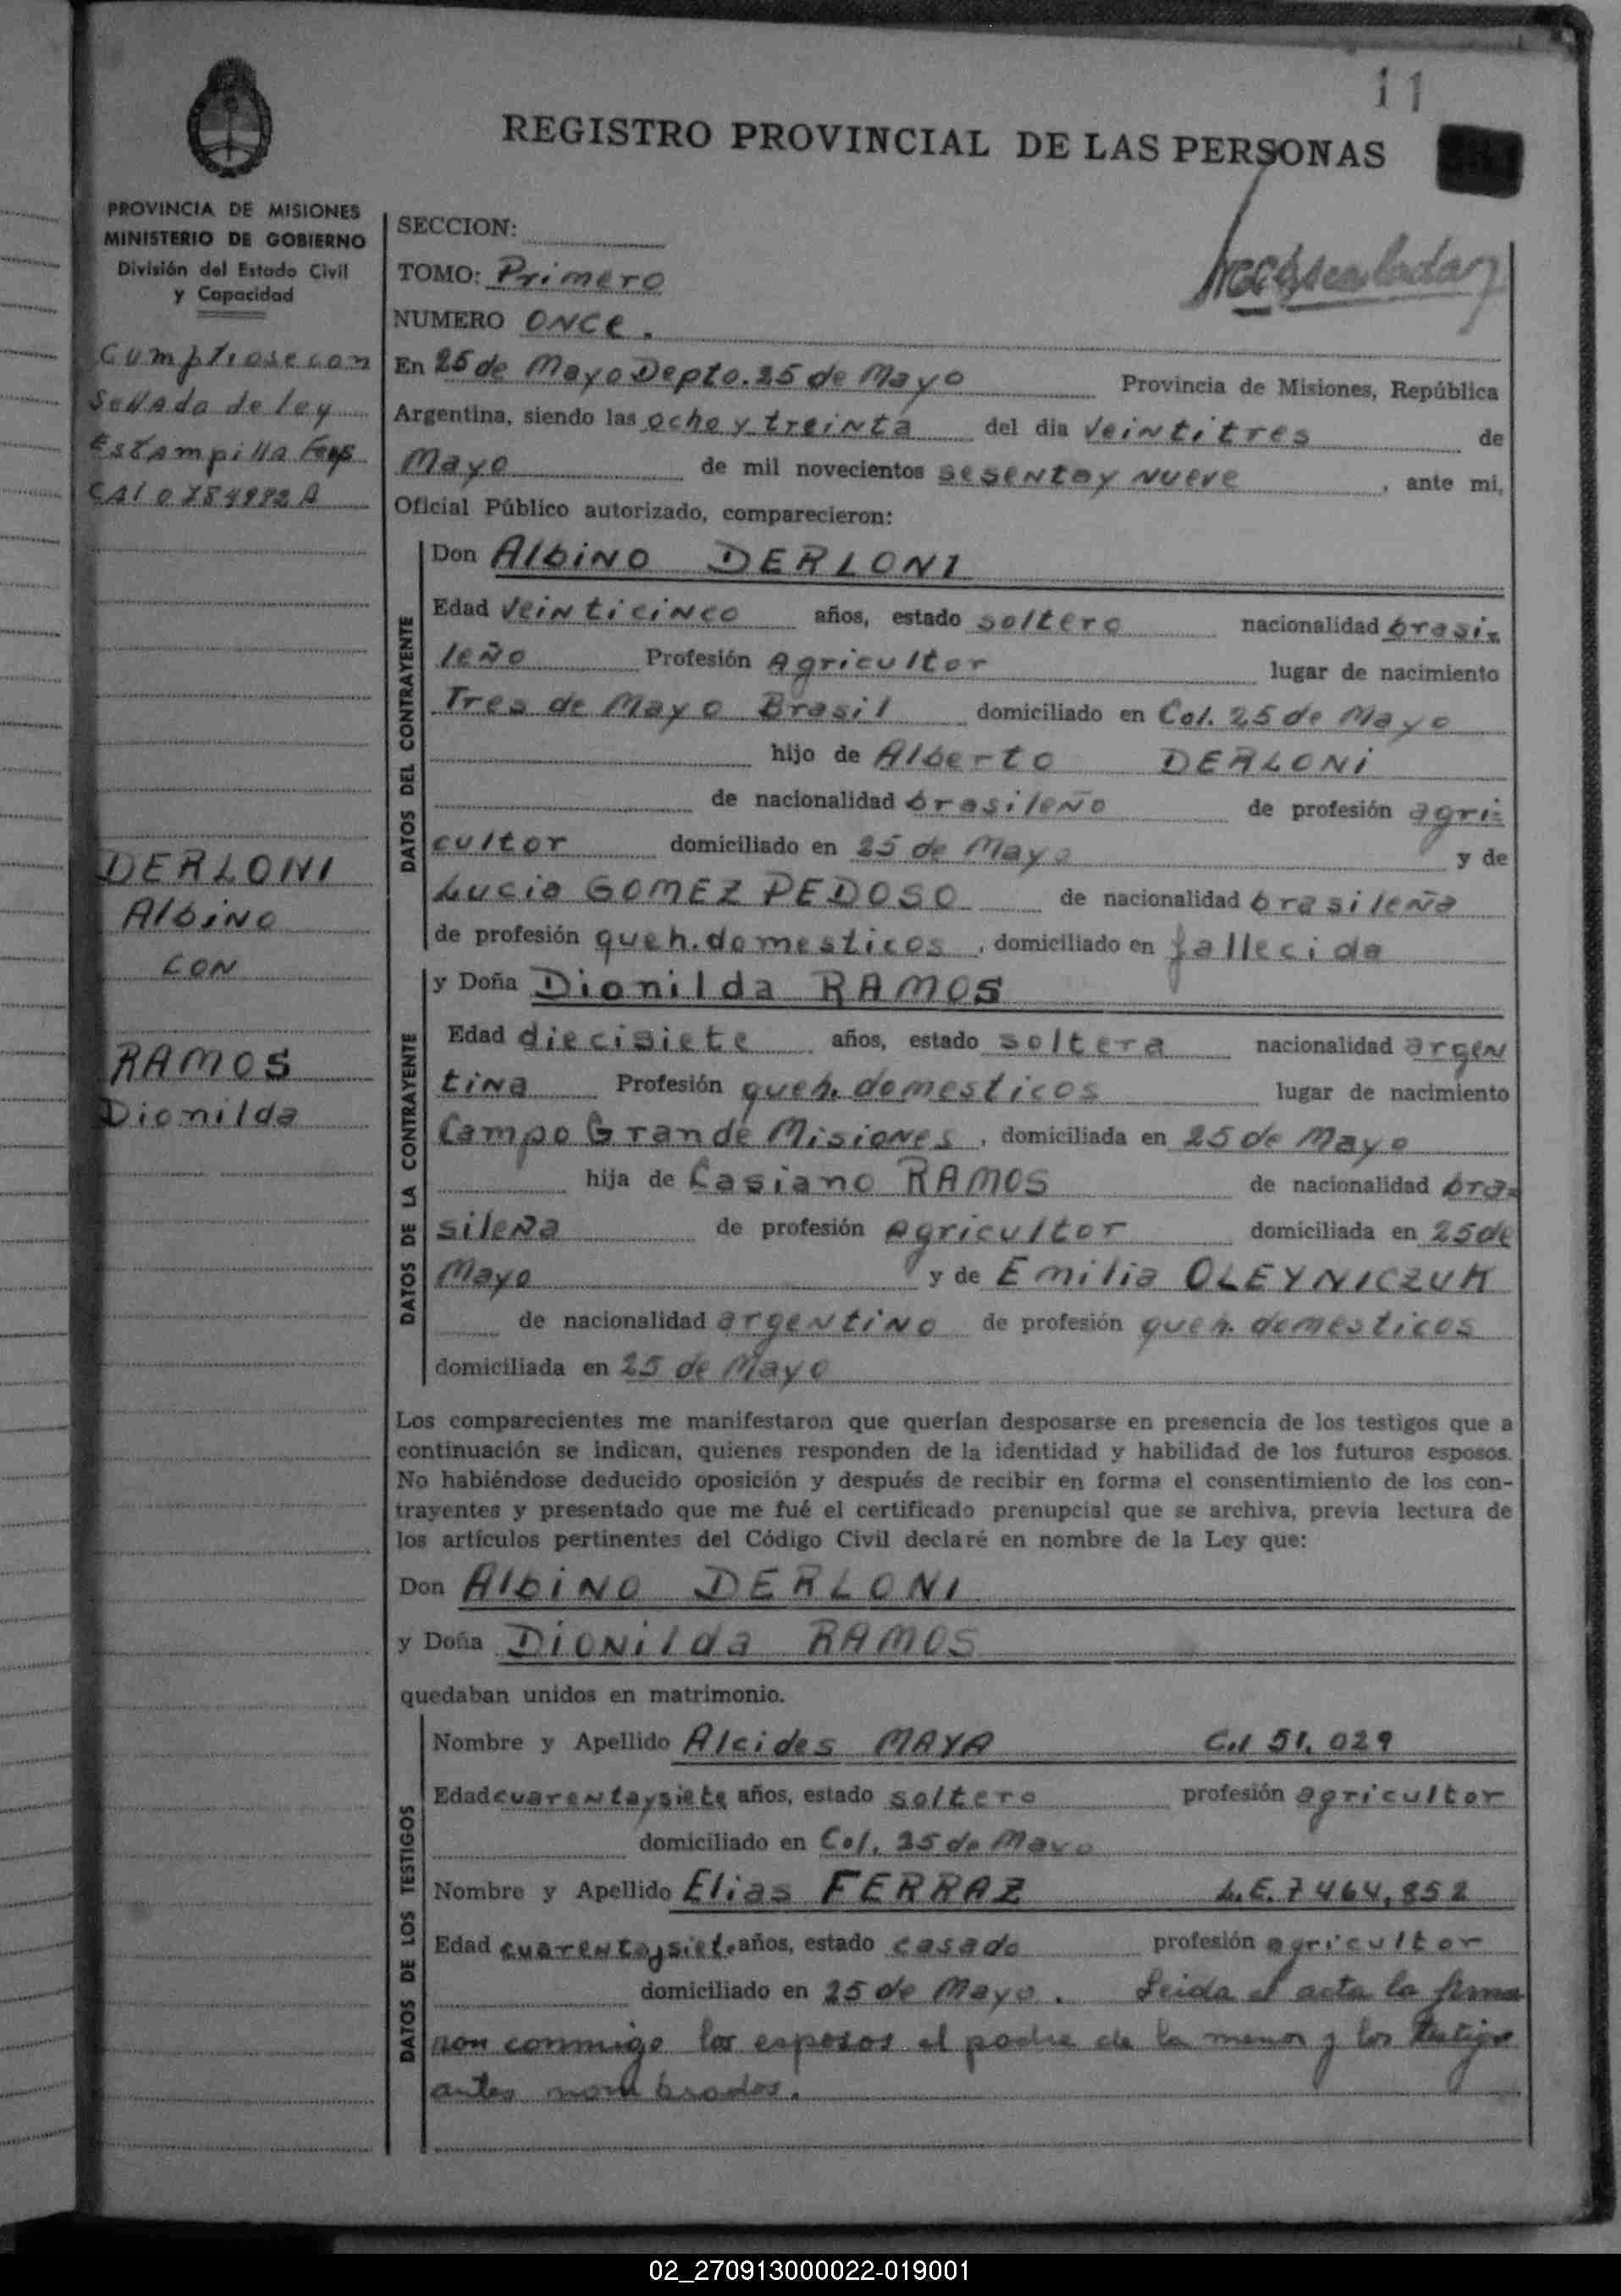 11
REGISTRO PROVINCIAL DE LAS PERSONAS
PROVINCIA DE MISIONES
MINISTERIO DE GOBIERNO
División del Estado Civil
y Capacidad
Cumpliose con
Sellado de ley
Estampilla
DERLONI
Albino
CON
RAMOS
Dionilda
SECCION:
TOMO: Primero
NUMERO ONCE.
En 25 de Mayo Depto. 25 de Mayo Provincia de Misiones, República
Argentina, siendo las ocho y treinta del dia veintitres de
Mayo de mil novecientos sesentay nueve, ante mi,
Oficial Público autorizado, comparecieron:
DATOS DEL CONTRAYENTE
Don Albino DERLONI
Edad veinticinco años, estado soltero nacionalidad brasi-
leño Profesión Agricultor lugar de nacimiento
Tres de Mayo Brasil domiciliado en Col. 25 de Mayo
hijo de Alberto DERLONI
de nacionalidad brasileño de profesión agri-
cultor domiciliado en 25 de Mayo y de
Lucia GOMEZ PEDOSO de nacionalidad brasileña
de profesión queh. domesticos, domiciliado en fallecida
DATOS DE LA CONTRAYENTE
y Doña Dionilda RAMOS
Edad diecisiete años, estado soltera nacionalidad argen
tina Profesión queh. domesticos lugar de nacimiento
Campo Grande Misiones, domiciliada en 25 de Mayo
hija de Casiano RAMOS de nacionalidad bra-
sileña de profesión Agricultor domiciliada en 25 de
Mayo y de Emilia OLEYNICZUK
de nacionalidad argentino de profesión queh. domesticos
domiciliada en 25 de Mayo
Los comparecientes me manifestaron que querían desposarse en presencia de los testigos que a
continuación se indican, quienes responden de la identidad y habilidad de los futuros esposos.
No habiéndose deducido oposición y después de recibir en forma el consentimiento de los con-
trayentes y presentado que me fué el certificado prenupcial que se archiva, previa lectura de
los artículos pertinentes del Código Civil declaré en nombre de la Ley que:
Don Albino DERLONI
y Doña Dionilda RAMOS
quedaban unidos en matrimonio.
DATOS DE LOS TESTIGOS
Nombre y Apellido Alcides MAYA C.I 51.029
Edad cuarentaysiete años, estado soltero profesión agricultor
domiciliado en Col. 25 de Mayo
Nombre y Apellido Elias FERRAZ L.E. 7464,852
Edad cuarentaysiete años, estado casado profesión agricultor
domiciliado en 25 de Mayo. Leida el acta la firma
ron conmigo los esposos el padre de la menor y los testigos
antes nombrados.
02_270913000022-019001